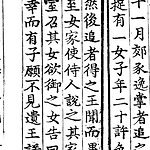 十一月郊逸掌者追之
捉有一女子年二十許負
然後追者得之王聞而異
至女家使侍人說之其家
室召其女欲御之女告曰
幸而有子願不見遺王諾